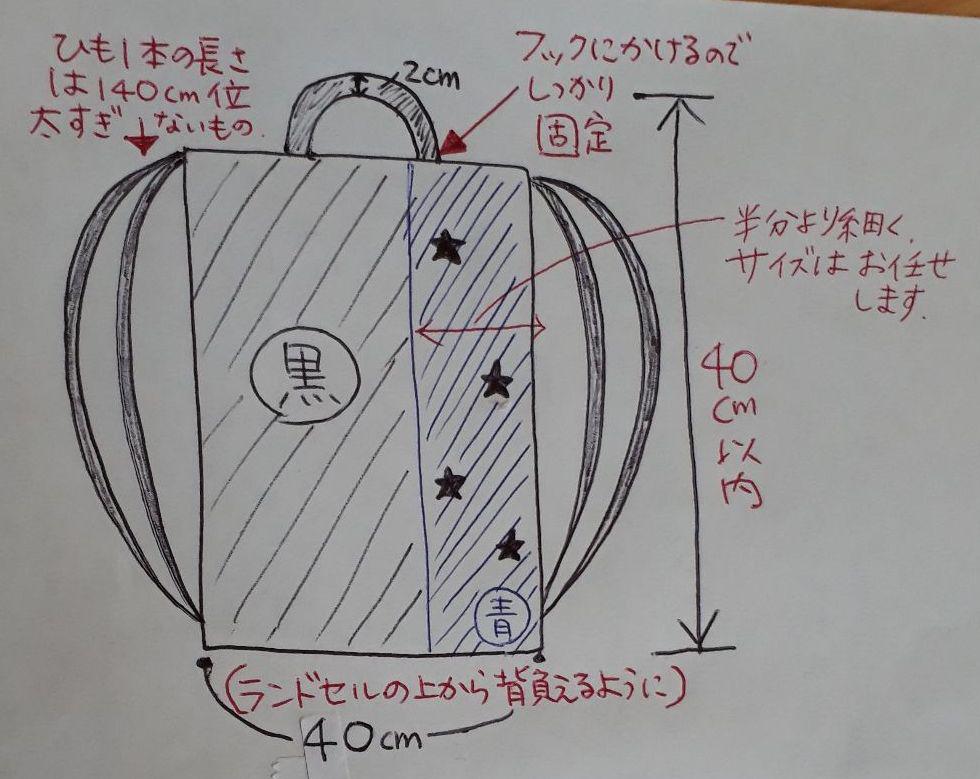 ひも1本の長さ
は140cm位
太すぎないもの.
2cm
フックにかけるので
しっかり
固定
半分より細く.
サイズはお任せ
します.
黒
40
cm
以
内
青
(ランドセルの上から背負えるように)
40cm